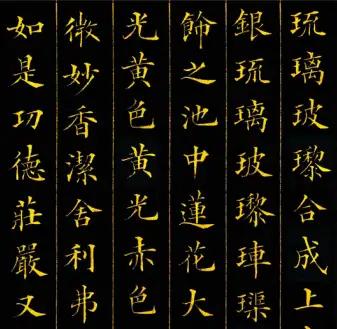 琉璃玻瓈合成上
銀琉璃玻瓈𤥭璖
飾之池中蓮花大
光黄色黄光赤色
微妙香潔舍利弗
如是功德莊嚴又